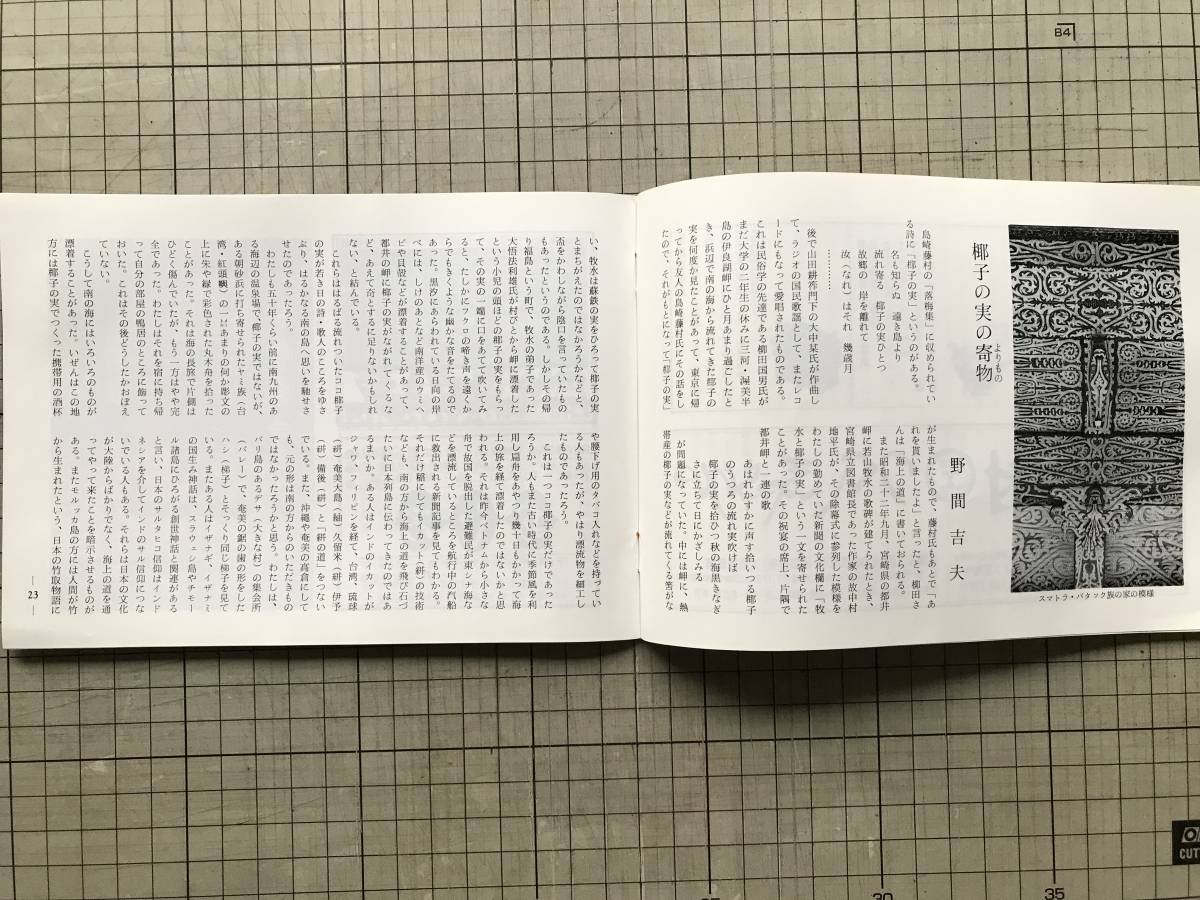 椰子の実の寄物
よりもの
野間吉夫
スマトラ・バタック族の家の模様
島崎藤村の「落梅集」に収められてい
る詩に「椰子の実」というのがある。
名も知らぬ 遠き島より
流れ寄る 椰子の実ひとつ
故郷の 岸を離れて
汝(なれ)はそれ 幾歳月
…………
後で山田耕筰門下の大中某氏が作曲し
て、ラジオの国民歌謡として、またレコ
ードにもなって愛唱されたものである。
これは民俗学の先達である柳田国男氏が
まだ大学の二年生の休みに三河・渥美半
島の伊良湖岬にひと月あまり過ごしたと
き、浜辺で南の海から流れてきた椰子の
実を何度か見たことがあって、東京に帰
ってから友人の島崎藤村氏にその話をし
たので、それがもとになって「椰子の実」
が生まれたもので、藤村氏もあとで「あ
れを貰いましたよ」と言ったと、柳田さ
んは「海上の道」に書いておられる。
また昭和二十二年九月、宮崎県の都井
岬に若山牧水の歌碑が建てられたとき、
宮崎県立図書館長であった作家の故中村
地平氏が、その除幕式に参列した模様を
わたしの勤めていた新聞の文化欄に「牧
水と椰子の実」という一文を寄せられた
ことがあった。その祝宴の席上、片隅で
都井岬と一連の歌
あはれかすかに声す拾いつる椰子
のうつろの流れ実吹けば
椰子の実を拾ひつ秋の海黒きなぎ
さに立ちて日にかざしみる
が問題になっていた。中には岬に、熱
帯産の椰子の実などが流れてくる筈がな
い、牧水は蘇鉄の実をひろって椰子の実
とまちがえたのではなかろうかなどと、
盃をかわしながら陰口を言っていたもの
もあったというのである。しかしその帰
り福島という町で、牧水の弟子であった
大悟法利雄氏が村びとから岬に漂着した
という小児の頭ほどの椰子の実をもらっ
て、その実の一端に口をあてて吹いてみ
ると、たしかにフクロの啼き声を遠くか
らでもきくような幽かな音をたてるので
あった。黒汐にあらわれている日向の岸
べには、しけのあとなど南洋産のウミヘ
ビや貝殻などが漂着することがあって、
都井の岬に椰子の実がながれてくるな
ど、あえて奇とするに足りないかもしれ
ない、と結んでいる。
これらははるばる流れついたココ椰子
の実が若き日の詩・歌人のこころをゆさ
ぶり、はるかなる南の島への思いを馳せさ
せたのであったろう。
わたしも五十年くらい前に南九州のあ
る海辺の温泉場で、椰子の実ではないが、
ある朝砂浜に打ち寄せられたヤミ族(台
湾・紅頭嶼)の一㍍あまりの何か彫文の
上に朱や緑で彩色された丸木舟を拾った
ことがあった。それは海の長旅で片側は
ひどく傷んでいたが、もう一方はやや完
全であった。わたしはそれを宿に持ち帰
って自分の部屋の鴨居のところに飾って
おいた。これはその後どうしたかおぼえ
ていない。
こうして南の海にはいろいろのものが
漂着することがあった。いぜんはこの地
方には椰子の実でつくった携帯用の酒杯
や腰下げ用のタバコ入れなどを持ってい
る人もあったが、やはり漂流物を細工し
たものであったろう。
これは一つココ椰子の実だけであった
ろうか。人もまた古い時代に季節風を利
用し扁舟をあやつり幾十日もかかって海
上の旅を経て漂着したのではないかと思
われる。それは昨今ベトナムから小さな
舟で故国を脱出した避難民が東シナ海な
どを漂流しているところを航行中の汽船
に救出される新聞記事を見てもわかる。
それだけ稲にしてもイカット(絣)の技術
なども、南の方から海上の道を飛び石づ
たいに日本列島に伝わってきたのではあ
るまいか。ある人はインドのイカットが
ジャワ、フィリピンを経て、台湾、琉球
(絣)奄美大島(紬)久留米(絣)伊予
(絣)備後(絣)と「絣の道」をつない
でいる。また、沖縄や奄美の高倉にして
も、元の形は南の方からのいただきもの
ではなかったろうかと思う。わたしは、
バリ島のあるデサ(大きな村)の集会所
(バレー)で、奄美の鋸の歯の形をした
ハシ(梯子)とそっくり同じ梯子を見て
いる。またある人はイザナギ、イザナミ
の国生み神話は、スラウェシ島やチモー
ル諸島にひろがる創世神話と関連がある
と言い、日本のサルタヒコ信仰はインド
ネシアを介してインドのサル信仰につな
いでいる人もある。それらは日本の文化
が大陸からばかりでなく、海上の道を通
ってやって来たことを暗示させるものが
ある。またモルッカ島の方には人間が竹
から生まれたという、日本の竹取物語に
— 23 —
84
25
30
35
CUTT